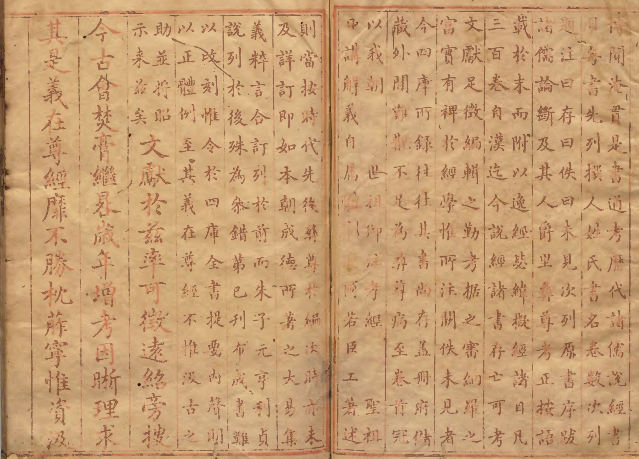 博聞淹貫是書通考歷代諸儒說經書
目每書先列撰人姓氏書名卷數次列
題注曰存曰佚曰未見次列原書序跋
諸儒論斷及其人爵里彝尊考正按語
載於末而附以逸經毖緯擬經諸目凡
三百卷自漢迄今說經諸書存亡可考
文獻足徵編輯之勤考据之審網羅之
富實有裨於經學惟所注闕佚未見者
今四庫所錄往往其書尚存蓋冊府儲
藏外間難覯不足為彝尊病至卷首冠
以我朝 世祖御注孝經 聖祖
日講解義自屬 若臣工著述
則當按時代先後彝尊於編次時亦未
及詳訂即如本朝成德所著之大易集
義粹言合訂列於前而朱子元亨利貞
說列於後殊為參錯第已刊布成書難
以改刻惟令於四庫全書提要內聲明
以正體例至其義在尊經不惟汲古之
助並將昭
示來茲矣 文獻於茲率可徵遠紹旁搜
今古曾焚膏繼晷歲年增考因晰理求
其是義在尊經靡不勝枕葄寧惟資汲